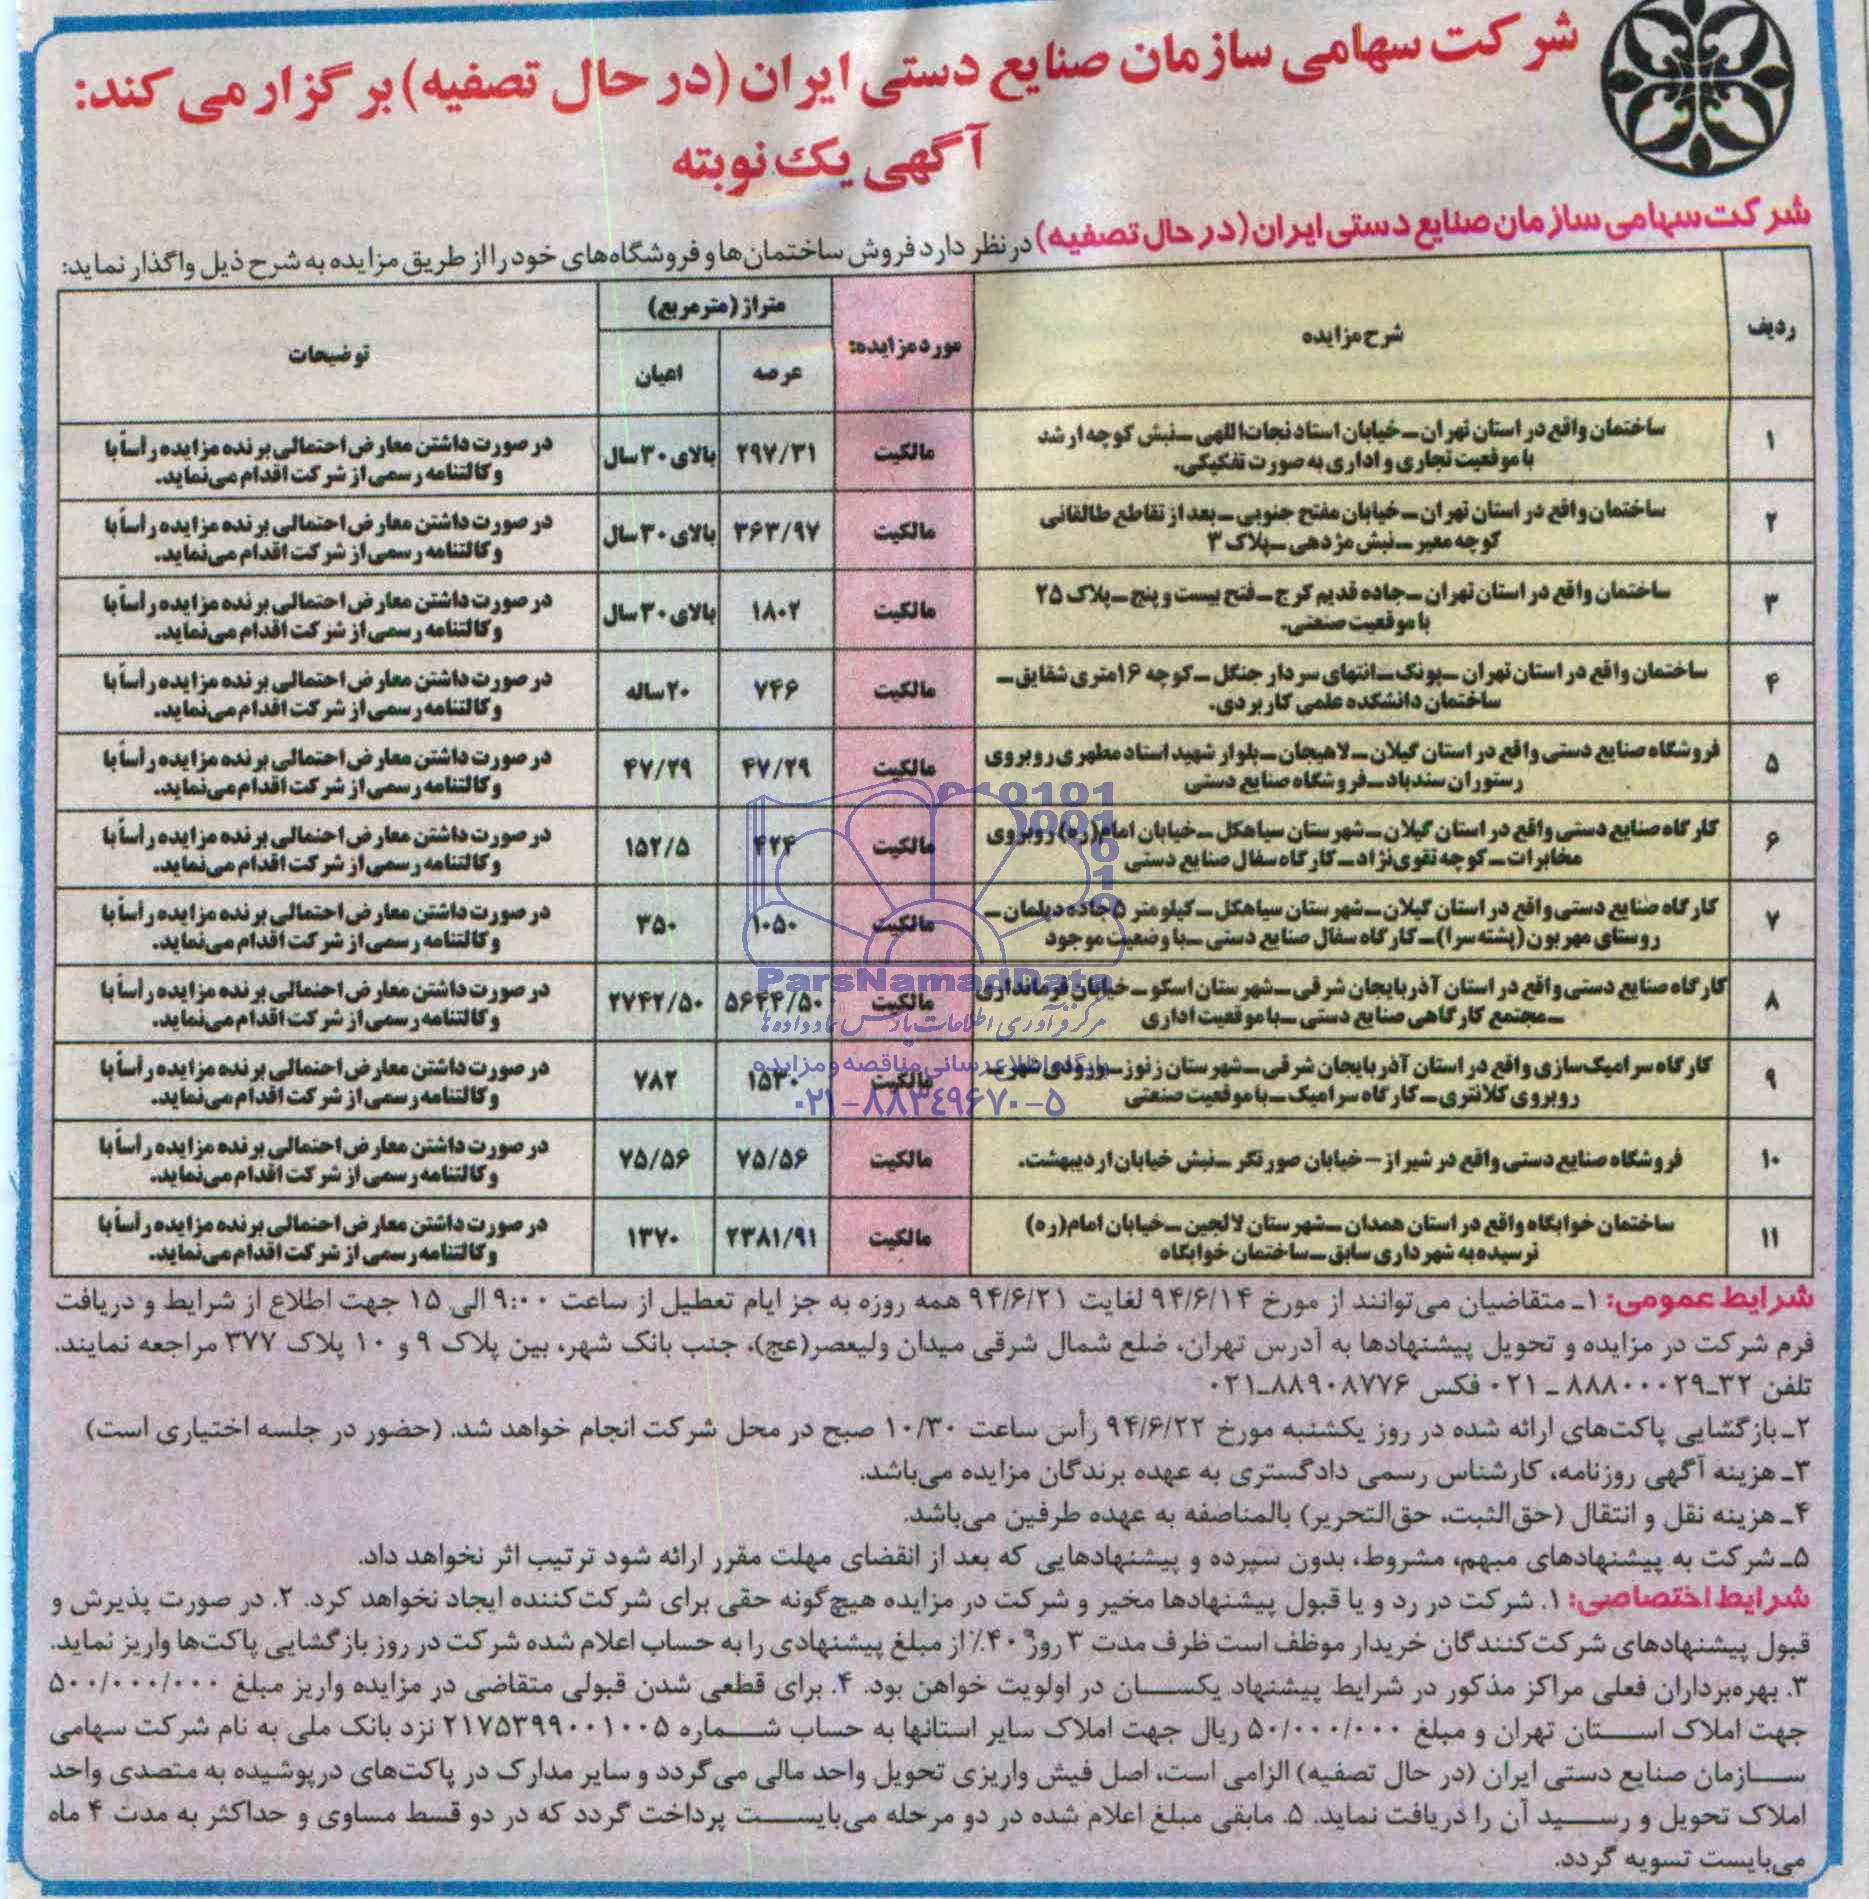 شرکت سهامی سازمان صنایع دستی ایران (در حال تصفیه) برگزار می کند:
آگهی یک نوبته
شرکت سهامی سازمان صنایع دستی ایران (در حال تصفیه) در نظر دارد فروش ساختمان‌ها و فروشگاه‌های خود را از طریق مزایده به شرح ذیل واگذار نماید:
ردیف
شرح مزایده
مورد مزایده:
متراژ (مترمربع)
عرصه
اعیان
توضیحات
۱
ساختمان واقع در استان تهران ـ خیابان استاد نجات‌اللهی ـ نبش کوچه ارشد
با موقعیت تجاری و اداری به صورت تفکیکی.
مالکیت
۲۹۷/۳۱
بالای ۳۰ سال
در صورت داشتن معارض احتمالی برنده مزایده رأساً با
وکالتنامه رسمی از شرکت اقدام می‌نماید.
۲
ساختمان واقع در استان تهران ـ خیابان مفتح جنوبی ـ بعد از تقاطع طالقانی
کوچه معیر ـ نبش مژدهی ـ پلاک ۳
مالکیت
۳۶۳/۹۷
بالای ۳۰ سال
در صورت داشتن معارض احتمالی برنده مزایده رأساً با
وکالتنامه رسمی از شرکت اقدام می‌نماید.
۳
ساختمان واقع در استان تهران ـ جاده قدیم کرج ـ فتح بیست و پنج ـ پلاک ۲۵
با موقعیت صنعتی.
مالکیت
۱۸۰۲
بالای ۳۰ سال
در صورت داشتن معارض احتمالی برنده مزایده رأساً با
وکالتنامه رسمی از شرکت اقدام می‌نماید.
۴
ساختمان واقع در استان تهران ـ پونک ـ انتهای سردار جنگل ـ کوچه ۱۶ متری شقایق ـ
ساختمان دانشکده علمی کاربردی.
مالکیت
۷۴۶
۲۰ ساله
در صورت داشتن معارض احتمالی برنده مزایده رأساً با
وکالتنامه رسمی از شرکت اقدام می‌نماید.
۵
فروشگاه صنایع دستی واقع در استان گیلان ـ لاهیجان ـ بلوار شهید استاد مطهری روبروی
رستوران سندباد ـ فروشگاه صنایع دستی
مالکیت
۴۷/۲۹
۴۷/۲۹
در صورت داشتن معارض احتمالی برنده مزایده رأساً با
وکالتنامه رسمی از شرکت اقدام می‌نماید.
۶
کارگاه صنایع دستی واقع در استان گیلان ـ شهرستان سیاهکل ـ خیابان امام(ره) روبروی
مخابرات ـ کوچه تقوی نژاد ـ کارگاه سفال صنایع دستی
مالکیت
۴۲۴
۱۵۲/۵
در صورت داشتن معارض احتمالی برنده مزایده رأساً با
وکالتنامه رسمی از شرکت اقدام می‌نماید.
۷
کارگاه صنایع دستی واقع در استان گیلان ـ شهرستان سیاهکل ـ کیلومتر ۵ جاده دیلمان ـ
روستای مهربون (پشته سرا) ـ کارگاه سفال صنایع دستی ـ با وضعیت موجود
مالکیت
۱۰۵۰
۳۵۰
در صورت داشتن معارض احتمالی برنده مزایده رأساً با
وکالتنامه رسمی از شرکت اقدام می‌نماید.
۸
کارگاه صنایع دستی واقع در استان آذربایجان شرقی ـ شهرستان اسکو ـ خیابان فرمانداری
ـ مجتمع کارگاهی صنایع دستی ـ با موقعیت اداری
مالکیت
۵۶۴۴/۵۰
۲۷۴۲/۵۰
در صورت داشتن معارض احتمالی برنده مزایده رأساً با
وکالتنامه رسمی از شرکت اقدام می‌نماید.
۹
کارگاه سرامیک‌سازی واقع در استان آذربایجان شرقی ـ شهرستان زنوز ـ ورودی شهر ـ
روبروی کلانتری ـ کارگاه سرامیک ـ با موقعیت صنعتی
مالکیت
۱۵۳۰
۷۸۲
در صورت داشتن معارض احتمالی برنده مزایده رأساً با
وکالتنامه رسمی از شرکت اقدام می‌نماید.
۱۰
فروشگاه صنایع دستی واقع در شیراز – خیابان صورتگر ـ نبش خیابان اردیبهشت.
مالکیت
۷۵/۵۶
۷۵/۵۶
در صورت داشتن معارض احتمالی برنده مزایده رأساً با
وکالتنامه رسمی از شرکت اقدام می‌نماید.
۱۱
ساختمان خوابگاه واقع در استان همدان ـ شهرستان لالجین ـ خیابان امام(ره)
نرسیده به شهرداری سابق ـ ساختمان خوابگاه
مالکیت
۲۳۸۱/۹۱
۱۳۷۰
در صورت داشتن معارض احتمالی برنده مزایده رأساً با
وکالتنامه رسمی از شرکت اقدام می‌نماید.
ParsNamadData
مرکز فرآوری اطلاعات پارس نماد داده‌ها
پایگاه اطلاع رسانی مناقصه و مزایده
۰۲۱-۸۸۳۴۹۶۷۰-۵
شرایط عمومی: ۱ـ متقاضیان می‌توانند از مورخ ۹۴/۶/۱۴ لغایت ۹۴/۶/۲۱ همه روزه به جز ایام تعطیل از ساعت ۹:۰۰ الی ۱۵ جهت اطلاع از شرایط و دریافت
فرم شرکت در مزایده و تحویل پیشنهادها به آدرس تهران، ضلع شمال شرقی میدان ولیعصر(عج)، جنب بانک شهر، بین پلاک ۹ و ۱۰ پلاک ۳۷۷ مراجعه نمایند.
تلفن ۳۲ـ۸۸۸۰۰۰۲۹ ـ ۰۲۱ فکس ۸۸۹۰۸۷۷۶ـ۰۲۱
۲ـ بازگشایی پاکت‌های ارائه شده در روز یکشنبه مورخ ۹۴/۶/۲۲ رأس ساعت ۱۰/۳۰ صبح در محل شرکت انجام خواهد شد. (حضور در جلسه اختیاری است)
۳ـ هزینه آگهی روزنامه، کارشناس رسمی دادگستری به عهده برندگان مزایده می‌باشد.
۴ـ هزینه نقل و انتقال (حق‌الثبت، حق‌التحریر) بالمناصفه به عهده طرفین می‌باشد.
۵ـ شرکت به پیشنهادهای مبهم، مشروط، بدون سپرده و پیشنهادهایی که بعد از انقضای مهلت مقرر ارائه شود ترتیب اثر نخواهد داد.
شرایط اختصاصی: ۱. شرکت در رد و یا قبول پیشنهادها مخیر و شرکت در مزایده هیچ گونه حقی برای شرکت‌کننده ایجاد نخواهد کرد. ۲. در صورت پذیرش و
قبول پیشنهادهای شرکت‌کنندگان خریدار موظف است ظرف مدت ۳ روز ۴۰٪ از مبلغ پیشنهادی را به حساب اعلام شده شرکت در روز بازگشایی پاکت‌ها واریز نماید.
۳. بهره‌برداران فعلی مراکز مذکور در شرایط پیشنهاد یکسان در اولویت خواهن بود. ۴. برای قطعی شدن قبولی متقاضی در مزایده واریز مبلغ ۵۰۰/۰۰۰/۰۰۰
جهت املاک استان تهران و مبلغ ۵۰/۰۰۰/۰۰۰ ریال جهت املاک سایر استانها به حساب شماره ۲۱۷۵۳۹۹۰۰۱۰۰۵ نزد بانک ملی به نام شرکت سهامی
سازمان صنایع دستی ایران (در حال تصفیه) الزامی است، اصل فیش واریزی تحویل واحد مالی می‌گردد و سایر مدارک در پاکت‌های درپوشیده به متصدی واحد
املاک تحویل و رسید آن را دریافت نماید. ۵. مابقی مبلغ اعلام شده در دو مرحله می‌بایست پرداخت گردد که در دو قسط مساوی و حداکثر به مدت ۴ ماه
می‌بایست تسویه گردد.